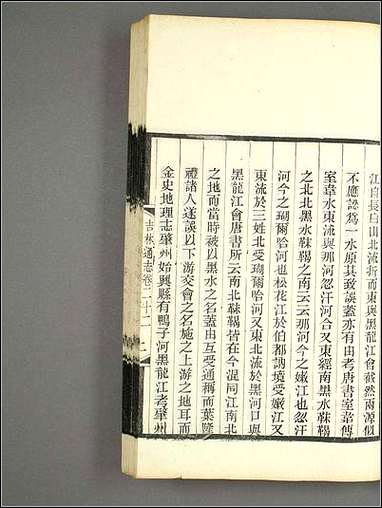 江自長白山北流折而東與黑龍江會截然兩源似
不應認爲一水原其致誤蓋亦有由考唐書室韋傳
室韋水東流與那河忽汗河合又東經南黑水靺鞨
之北北黑水靺鞨之南云云那河今之嫩江也忽汗
河今之瑚爾哈河也松花江於伯都訥境受嫩江又
東流於三姓北受瑚爾哈河又東北流於黑河口與
黑龍江會唐書所云南北靺鞨皆在今混同江南北
之地而當時被以黑水之名蓋由互受通稱而葉隆
禮諸人遂誤以下游交會之名施之上游之地耳而
金史地理志肇州始興縣有鴨子河黑龍江考肇州
吉林通志卷二十二